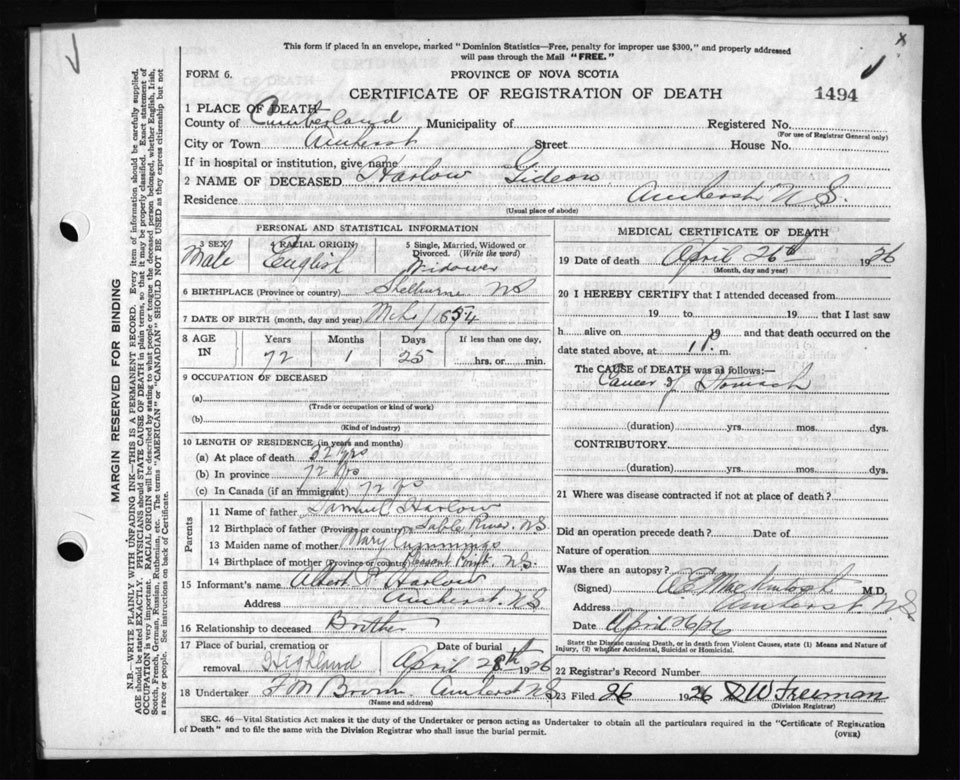 This form if placed in an envelope, marked "Dominion Statistics—Free, penalty for improper use $300," and properly addressed
will pass through the Mail "FREE."
FORM 6.
PROVINCE OF NOVA SCOTIA
CERTIFICATE OF REGISTRATION OF DEATH
1494
1 PLACE OF DEATH
County of Cumberland Municipality of Registered No.
(For use of Registrar General only)
City or Town Amherst Street House No.
If in hospital or institution, give name
2 NAME OF DECEASED Harlow Gideon
Residence Amherst N.S.
(Usual place of abode)
PERSONAL AND STATISTICAL INFORMATION
3 SEX 4 RACIAL ORIGIN 5 Single, Married, Widowed or
Divorced. (Write the word)
Male English Widower
6 BIRTHPLACE (Province or country) Shelburne NS
7 DATE OF BIRTH (month, day and year) 1854
8 AGE IN Years Months Days If less than one day,
72 1 25 hrs. or min.
9 OCCUPATION OF DECEASED
(a)
(Trade or occupation or kind of work)
(b)
(Kind of industry)
10 LENGTH OF RESIDENCE (in years and months)
(a) At place of death 32 yrs
(b) In province 72 yrs
(c) In Canada (if an immigrant) 72 yrs
Parents
11 Name of father Samuel Harlow
12 Birthplace of father (Province or country) Sable River. N.S.
13 Maiden name of mother Mary Cummings
14 Birthplace of mother (Province or country) Pleasant Point. N.S.
15 Informant's name Albert P Harlow
Address Amherst. N.S.
16 Relationship to deceased Brother
17 Place of burial, cremation or Date of burial
removal Highland April 28th 1926
18 Undertaker F M Brown. Amherst N.S.
(Name and address)
MEDICAL CERTIFICATE OF DEATH
19 Date of death April 26th 1926
(Month, day and year)
20 I HEREBY CERTIFY that I attended deceased from
19 to 19 that I last saw
h alive on 19 and that death occurred on
date stated above, at 11 P. m.
The CAUSE of DEATH was as follows:—
Cancer of Stomach
(duration) yrs. mos. dys.
CONTRIBUTORY
(duration) yrs. mos. dys.
21 Where was disease contracted if not at place of death?
Did an operation precede death? Date of
Nature of operation
Was there an autopsy?
(Signed) MacKintosh M.D.
Address Amherst. N.S.
Date April 26 26
State the Disease causing Death, or in death from Violent Causes, state (1) Means and Nature of
Injury, (2) whether Accidental, Suicidal or Homicidal.
22 Registrar's Record Number
23 Filed 26 1926 D W Freeman
(Division Registrar)
SEC. 46—Vital Statistics Act makes it the duty of the Undertaker or person acting as Undertaker to obtain all the particulars required in the "Certificate of Registration
of Death" and to file the same with the Division Registrar who shall issue the burial permit.
(OVER)
MARGIN RESERVED FOR BINDING
N.B.—WRITE PLAINLY WITH UNFADING INK—THIS IS A PERMANENT RECORD. Every item of information should be carefully supplied.
AGE should be stated EXACTLY. PHYSICIANS should STATE CAUSE OF DEATH in plain terms, so that it may be properly classified. Exact statement of
OCCUPATION is very important. RACIAL ORIGIN will be described by stating to what people or tongue the deceased person belonged, whether English, Irish,
Scotch, French, German, Russian, Ruthenian, etc. The terms "AMERICAN" or "CANADIAN" SHOULD NOT BE USED as they express citizenship but not
a race or people. See instructions on back of Certificate.